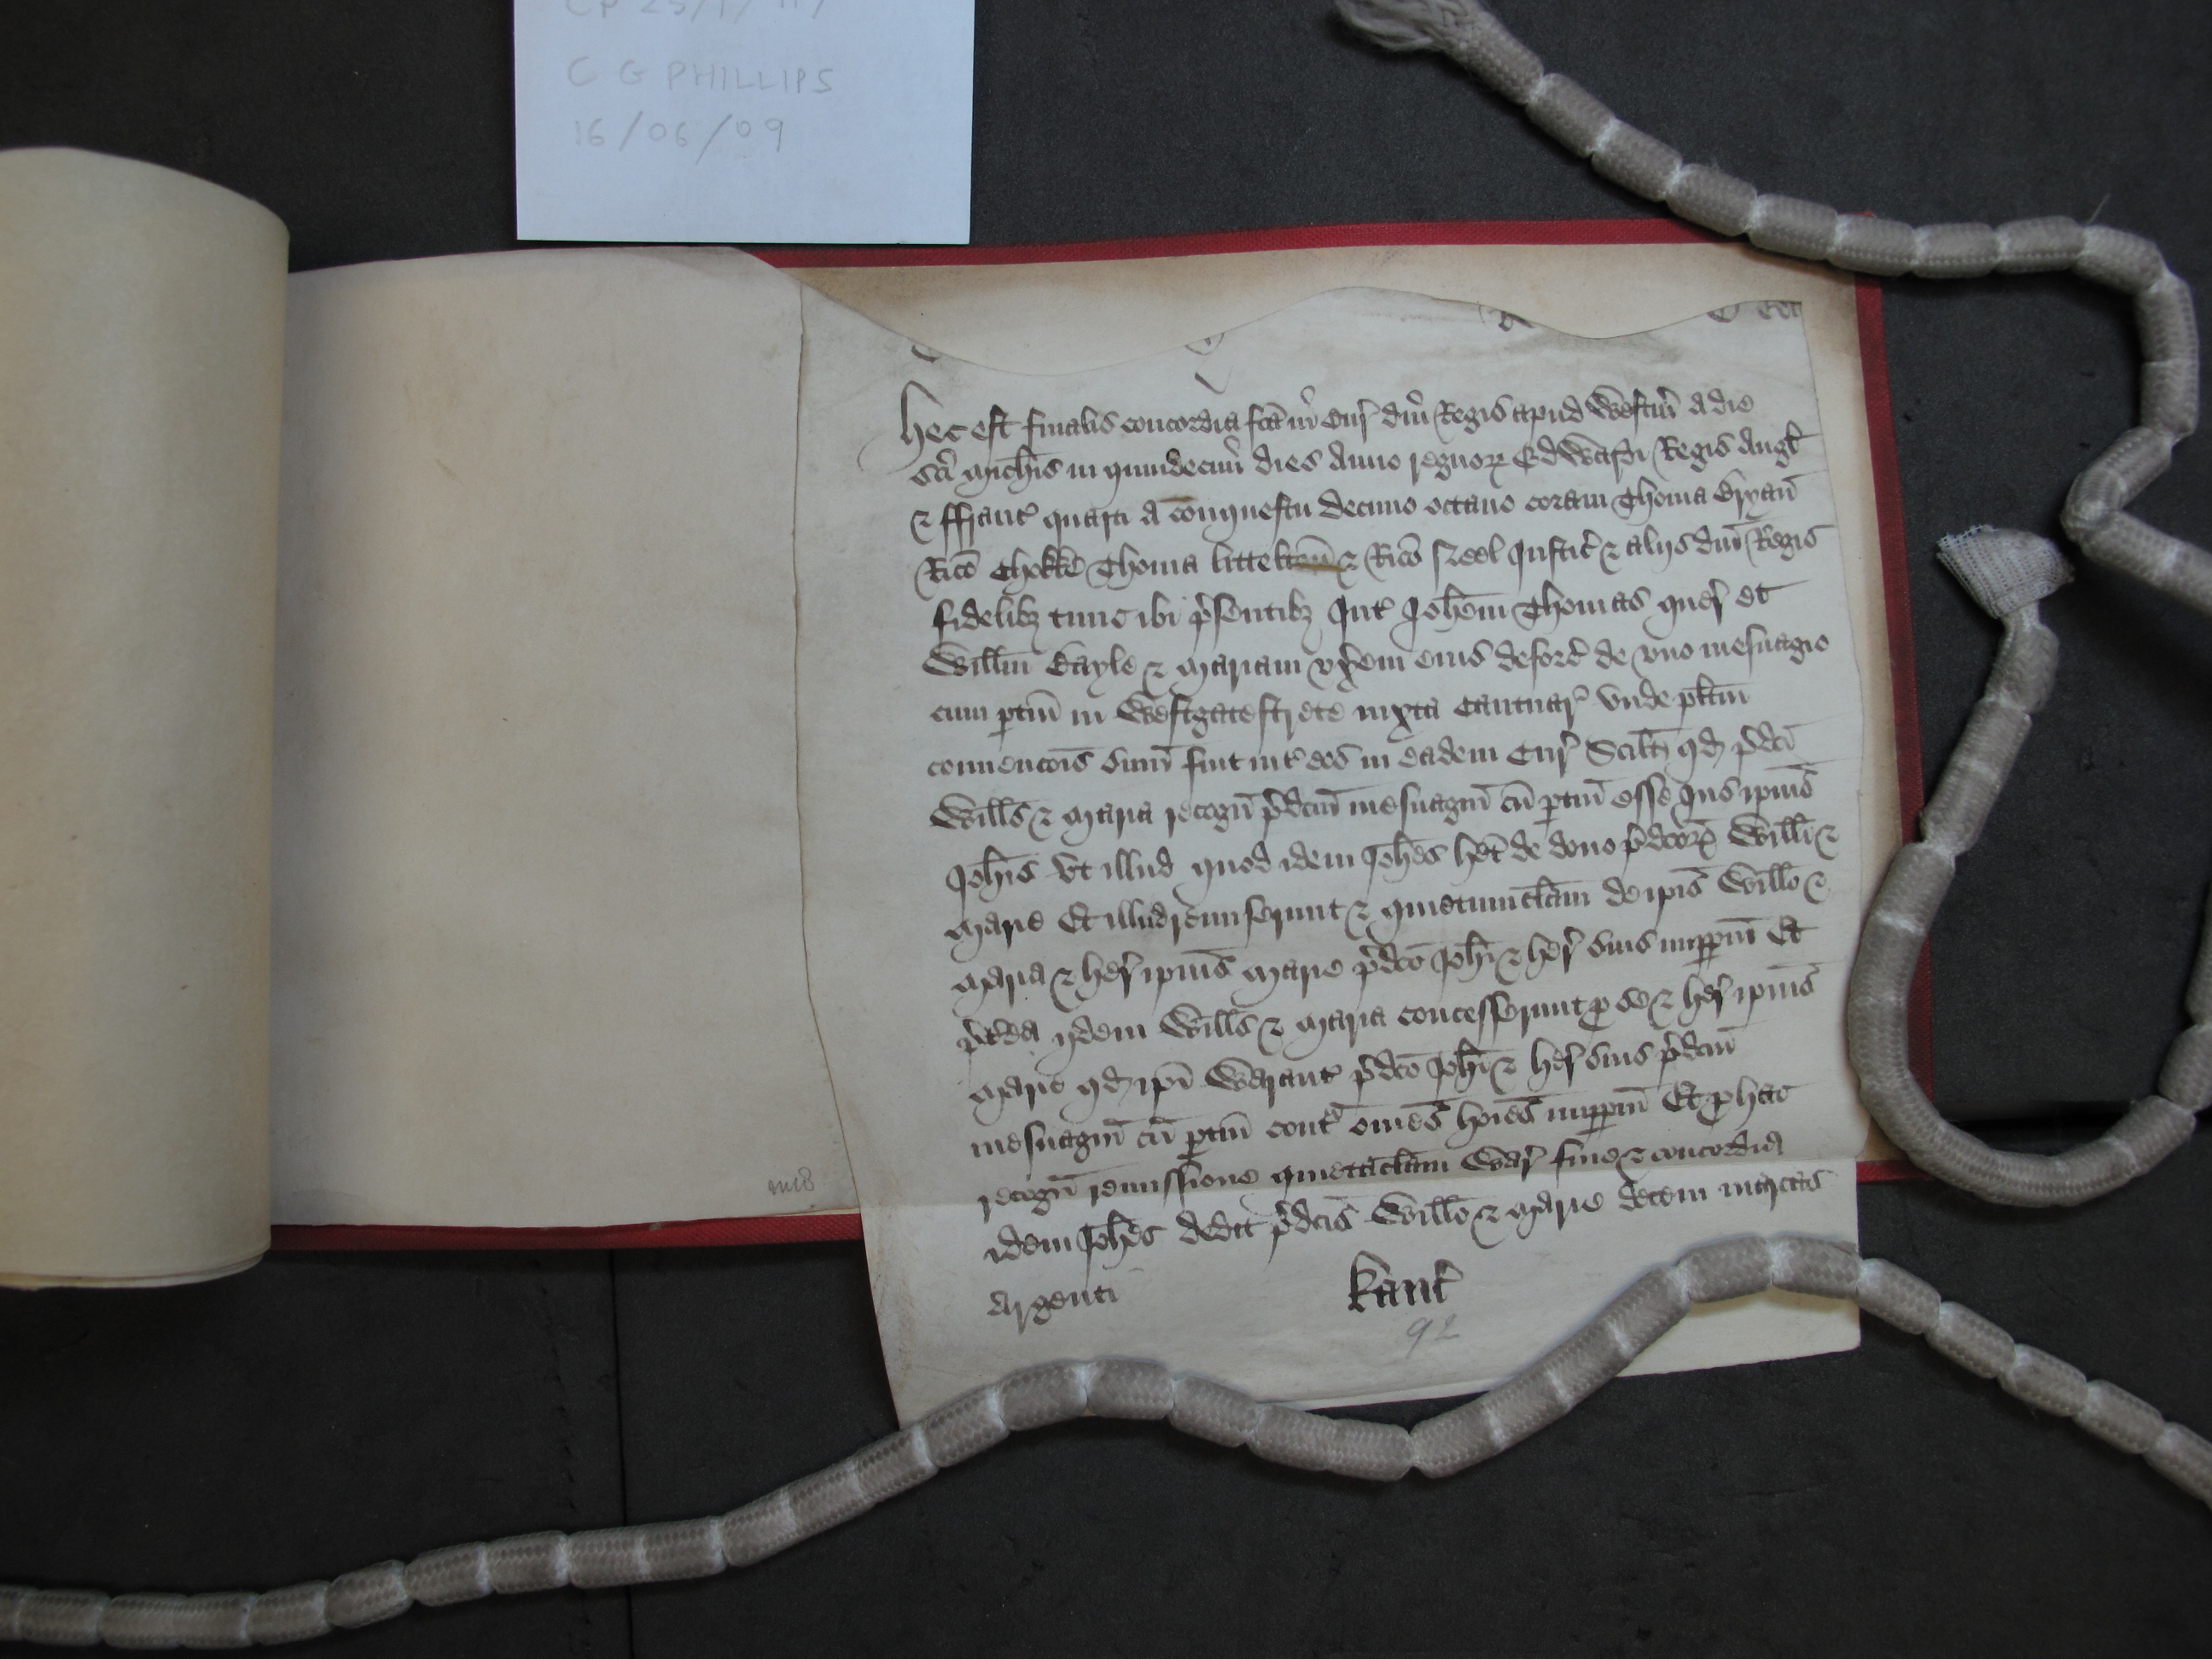 C G PHILLIPS
16/06/09
Hec est finalis concordia fc̄a in Cur̉ dn̄i Regis apud Westm̉ a die
sc̄i Mich̄is in quindecim̉ dies Anno regnoꝝ Edwardi Regis Angł
⁊ ffranc̉ quarti a conquestu decimo octavo coram Thoma Bryan̄
Ric̄o Chokke Thoma littelton̄ ⁊ Ric̄o Neel Justic̉ ⁊ alijs dn̄i Regis
fidelibꝫ tunc ibi p̉sentibꝫ Int̉ Joh̄em Thomas quer̉ et
Willm̄ Bayle ⁊ Mariam vx̉em eius deforc̉ de vno mesuagio
cum ptin̄ in Westgatestrete iuxta Cantuar̉ Vnde pl̄itm
convenc̄ois sum̄ fuit int̉ eos in eadem Cur̉ Scilt̉ qd p̉dc̄i
Wills̄ ⁊ Maria recogn̄ p̉dcm̄ mesuagiū cū ptin̄ esse Jus ip̄ius
Joh̄is vt illud quod idem Joh̄es h̄et de dono p̉dcoꝝ Willī ⁊
Marie Et illud remiserunt ⁊ quietumclam̄ de ip̄is Willō ⁊
Maria ⁊ her̉ ip̄ius Marie p̉dco̅ Joh̄i ⁊ her̉ suis imppm̄ Et
p̉terea ijdem Wills̄ ⁊ Maria concesserunt p se ⁊ her̉ ip̄ius
Marie qd ip̄i Warant̉ p̉dco̅ Joh̄i ⁊ her̉ suis p̉dcm̄
mesuagiū cū ptin̄ contᵃ om̄es ho̅ies imppm̄ Et p hac
recogn̄ remissione quietaclam̄ War̉ fine ⁊ concordia
idem Joh̄es dedit p̉dc̄is Willō ⁊ Marie decem marcas
Argenti
Kanc̉
92